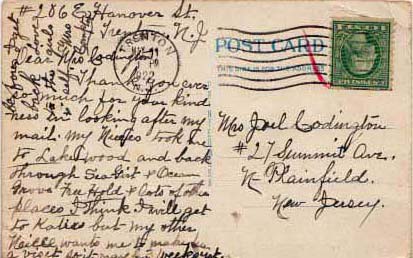 # 286 E. Hanover St.
Trenton N. J
Dear Mrs Codington
Thank you ever
so much for your kind
ness in looking after my
mail. My Nieces took me
to Lakewood and back
through Sea Girt & Ocean
Grove Free Hold & lots of other
places I think I will get
to Katies but my other
Neice wants me to make
a visit so it may be weekout
love
to the girls
back
TRENTON
1922
N.J.
POST CARD
Mrs Joel Codington
# 27 Summit Ave.
N Plainfield.
New Jersey.